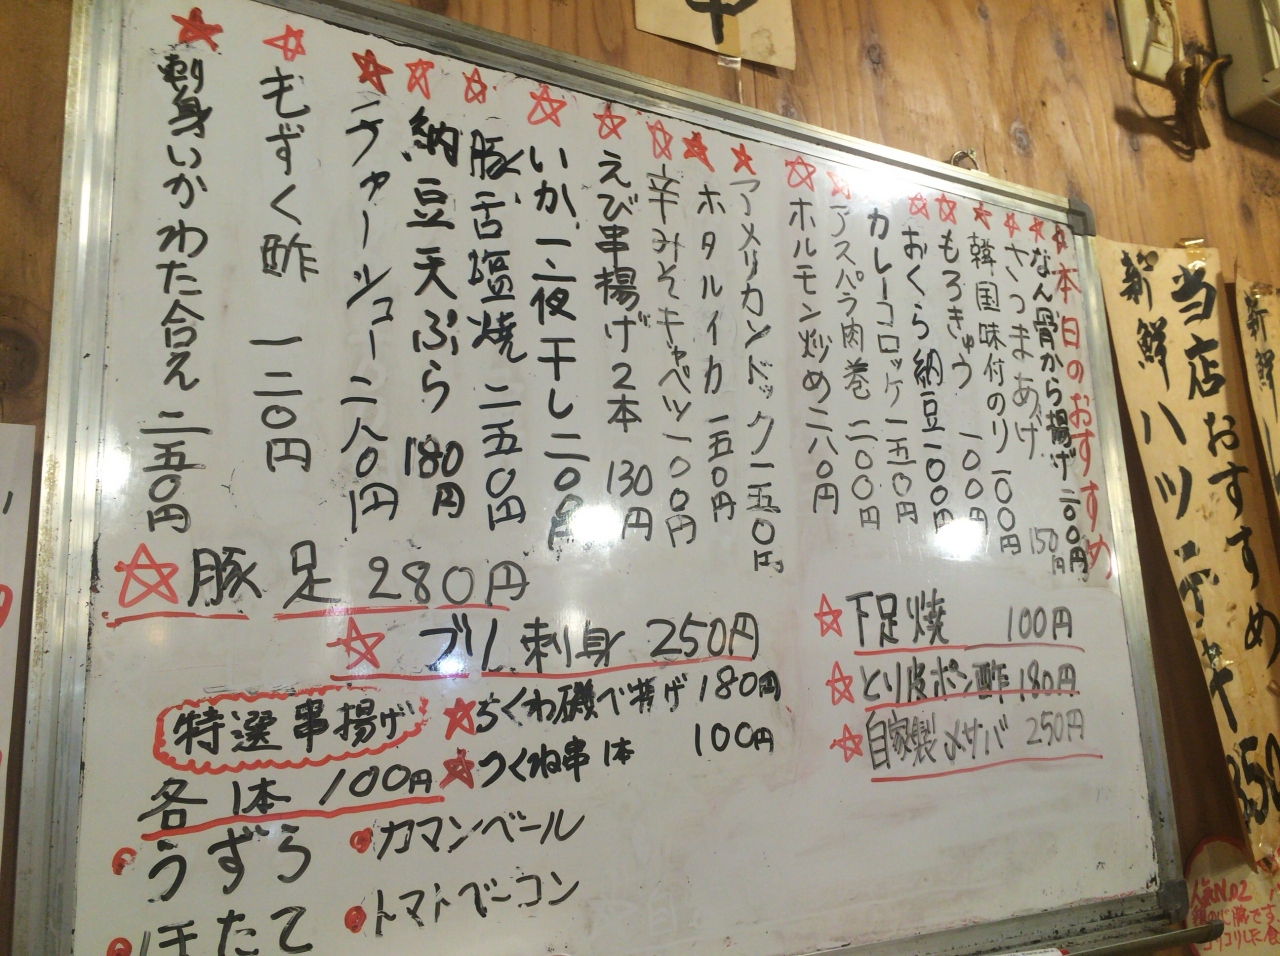 本日のおすすめ
なん骨から揚げ 二〇〇円
さつまあげ 150円
韓国味付のり 一〇〇円
もろきゅう 一〇〇円
おくら納豆 一〇〇円
カレーコロッケ 一五〇円
アスパラ肉巻 二〇〇円
ホルモン炒め 二八〇円
アメリカンドック 一五〇円
ホタルイカ 一五〇円
辛みそキャベツ 一〇〇円
えび串揚げ2本 130円
いか一夜干し 二〇〇円
豚舌塩焼 二五〇円
納豆天ぷら 180円
チャーシュー 二八〇円
もずく酢 一二〇円
刺身いかわた合え 二五〇円
豚足 280円
ブリ刺身 250円
下足焼 100円
とり皮ポン酢 180円
自家製〆サバ 250円
特選串揚げ
各1本 100円
ちくわ磯べ揚げ 180円
つくね串1本 100円
うずら
カマンベール
ほたて
トマトベーコン
当店おすすめ
新鮮ハツ
350
新鮮
人気No.2